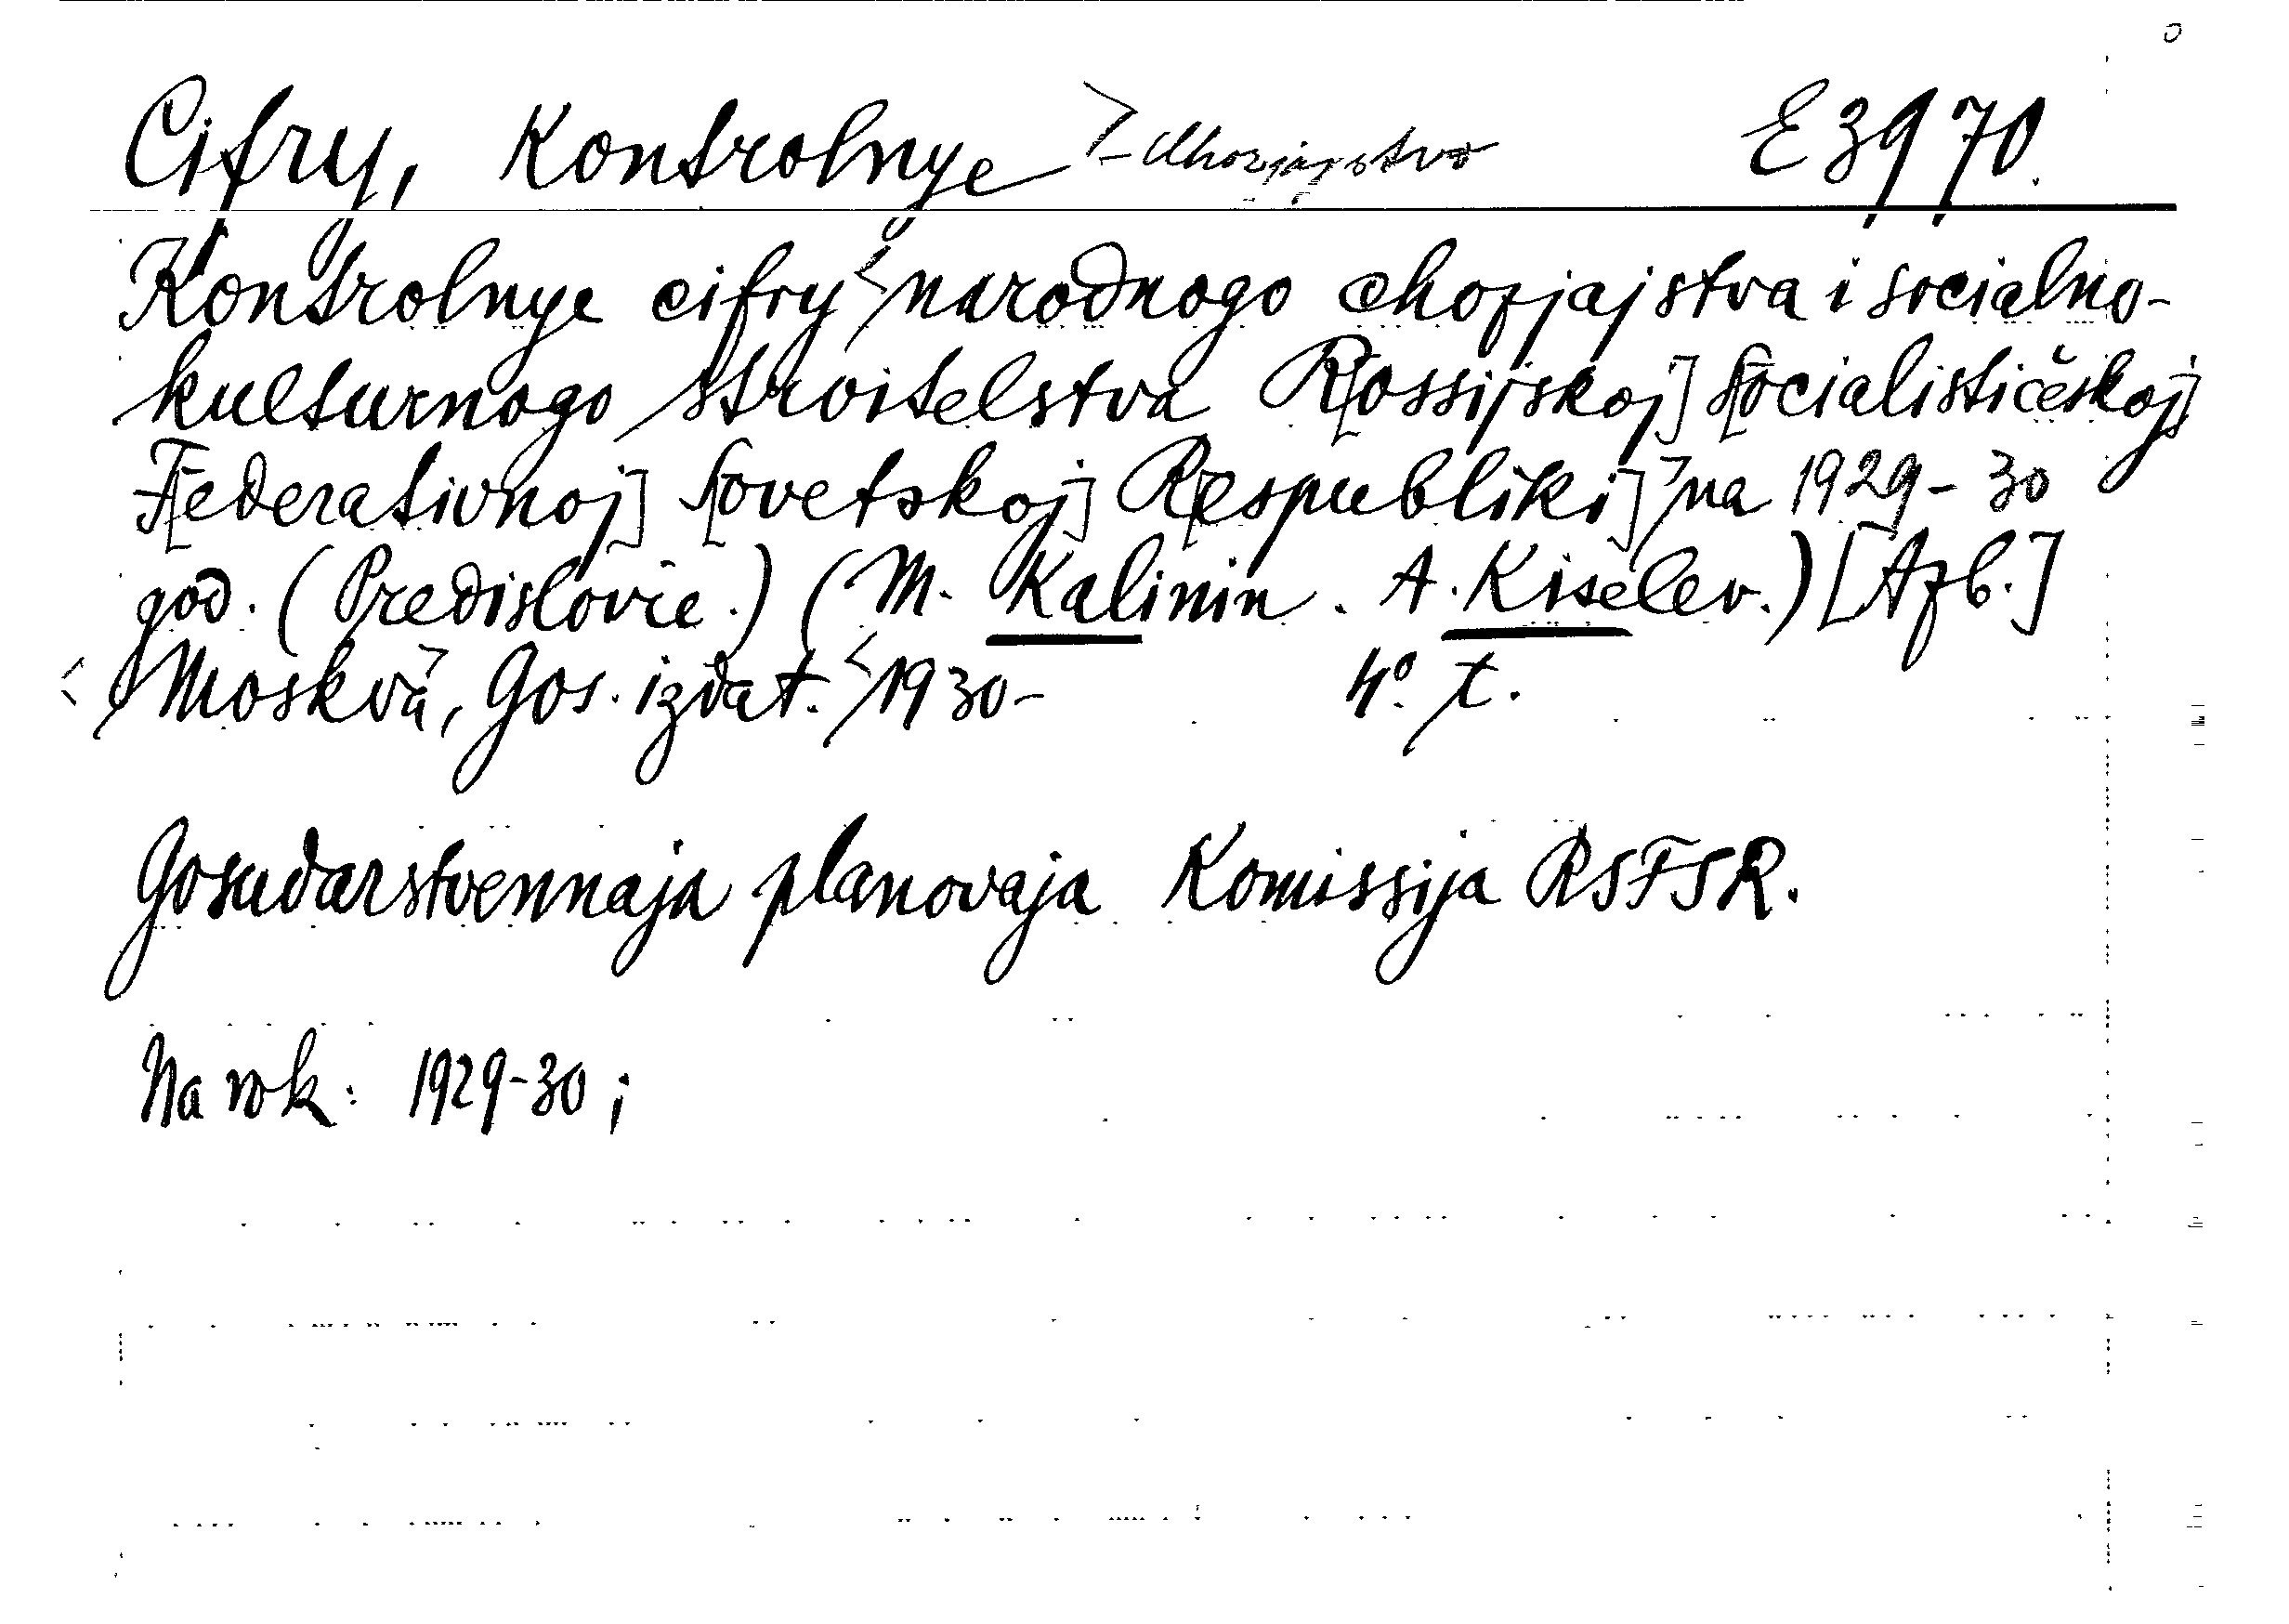 Cifry, Kontrolnye E 3970.
Kontrolnye cifry narodnogo chozjajstva i socialno-
kulturnogo stroitelstva R[ossijskoj] S[ocialističeskoj]
F[ederativnoj] S[ovetskoj] R[espubliki] na 1929-30
god. (Predislovie.) (M. Kalinin. A. Kiselev.) [Azb.]
Moskva, Gos. izdat. 1930- 4° t.
Gosudarstvennaja planovaja Komissija RSFSR.
Na rok: 1929-30;